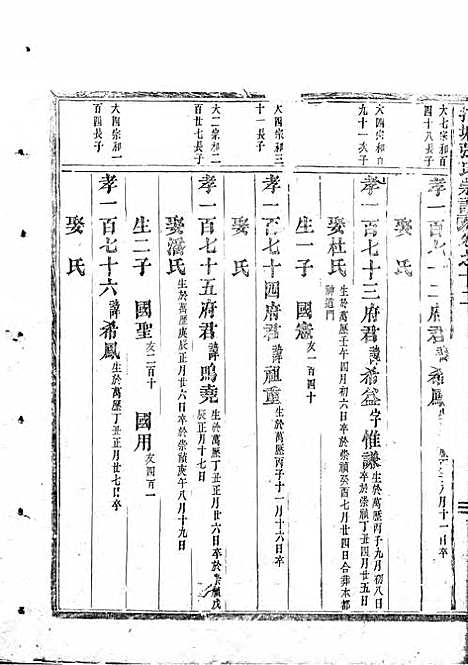 大七宗和百
四十八長子
孝一百七十二府君 諱希鳳
八月十一日卒
娶 氏
大四宗和百
九十一次子
孝一百七十三府君 諱希益字惟謙 生於萬歷丙子九月初八日
卒於崇禎丁丑四月廿五日
娶杜氏 生於萬歷壬午四月初六日卒於崇禎癸酉七月廿四日合葬木都
神道門
生一子 國憲 亥一百四十
大四宗和三
十一長子
孝一百七十四府君 諱祖重 生於萬歷丙子十一月十六日卒
娶 氏
大二宗和二
百廿七長子
孝一百七十五府君 諱鳴堯 生於萬歷丁丑正月廿六日卒於崇禎戊
辰正月十七日
娶潘氏 生於萬歷庚辰正月廿六日卒於崇禎庚午八月十九日
生二子 國聖 亥二百十 國用 亥四百一
大四宗和一
百四長子
孝一百七十六 諱希鳳 生於萬歷丁丑正月廿七日卒
娶 氏